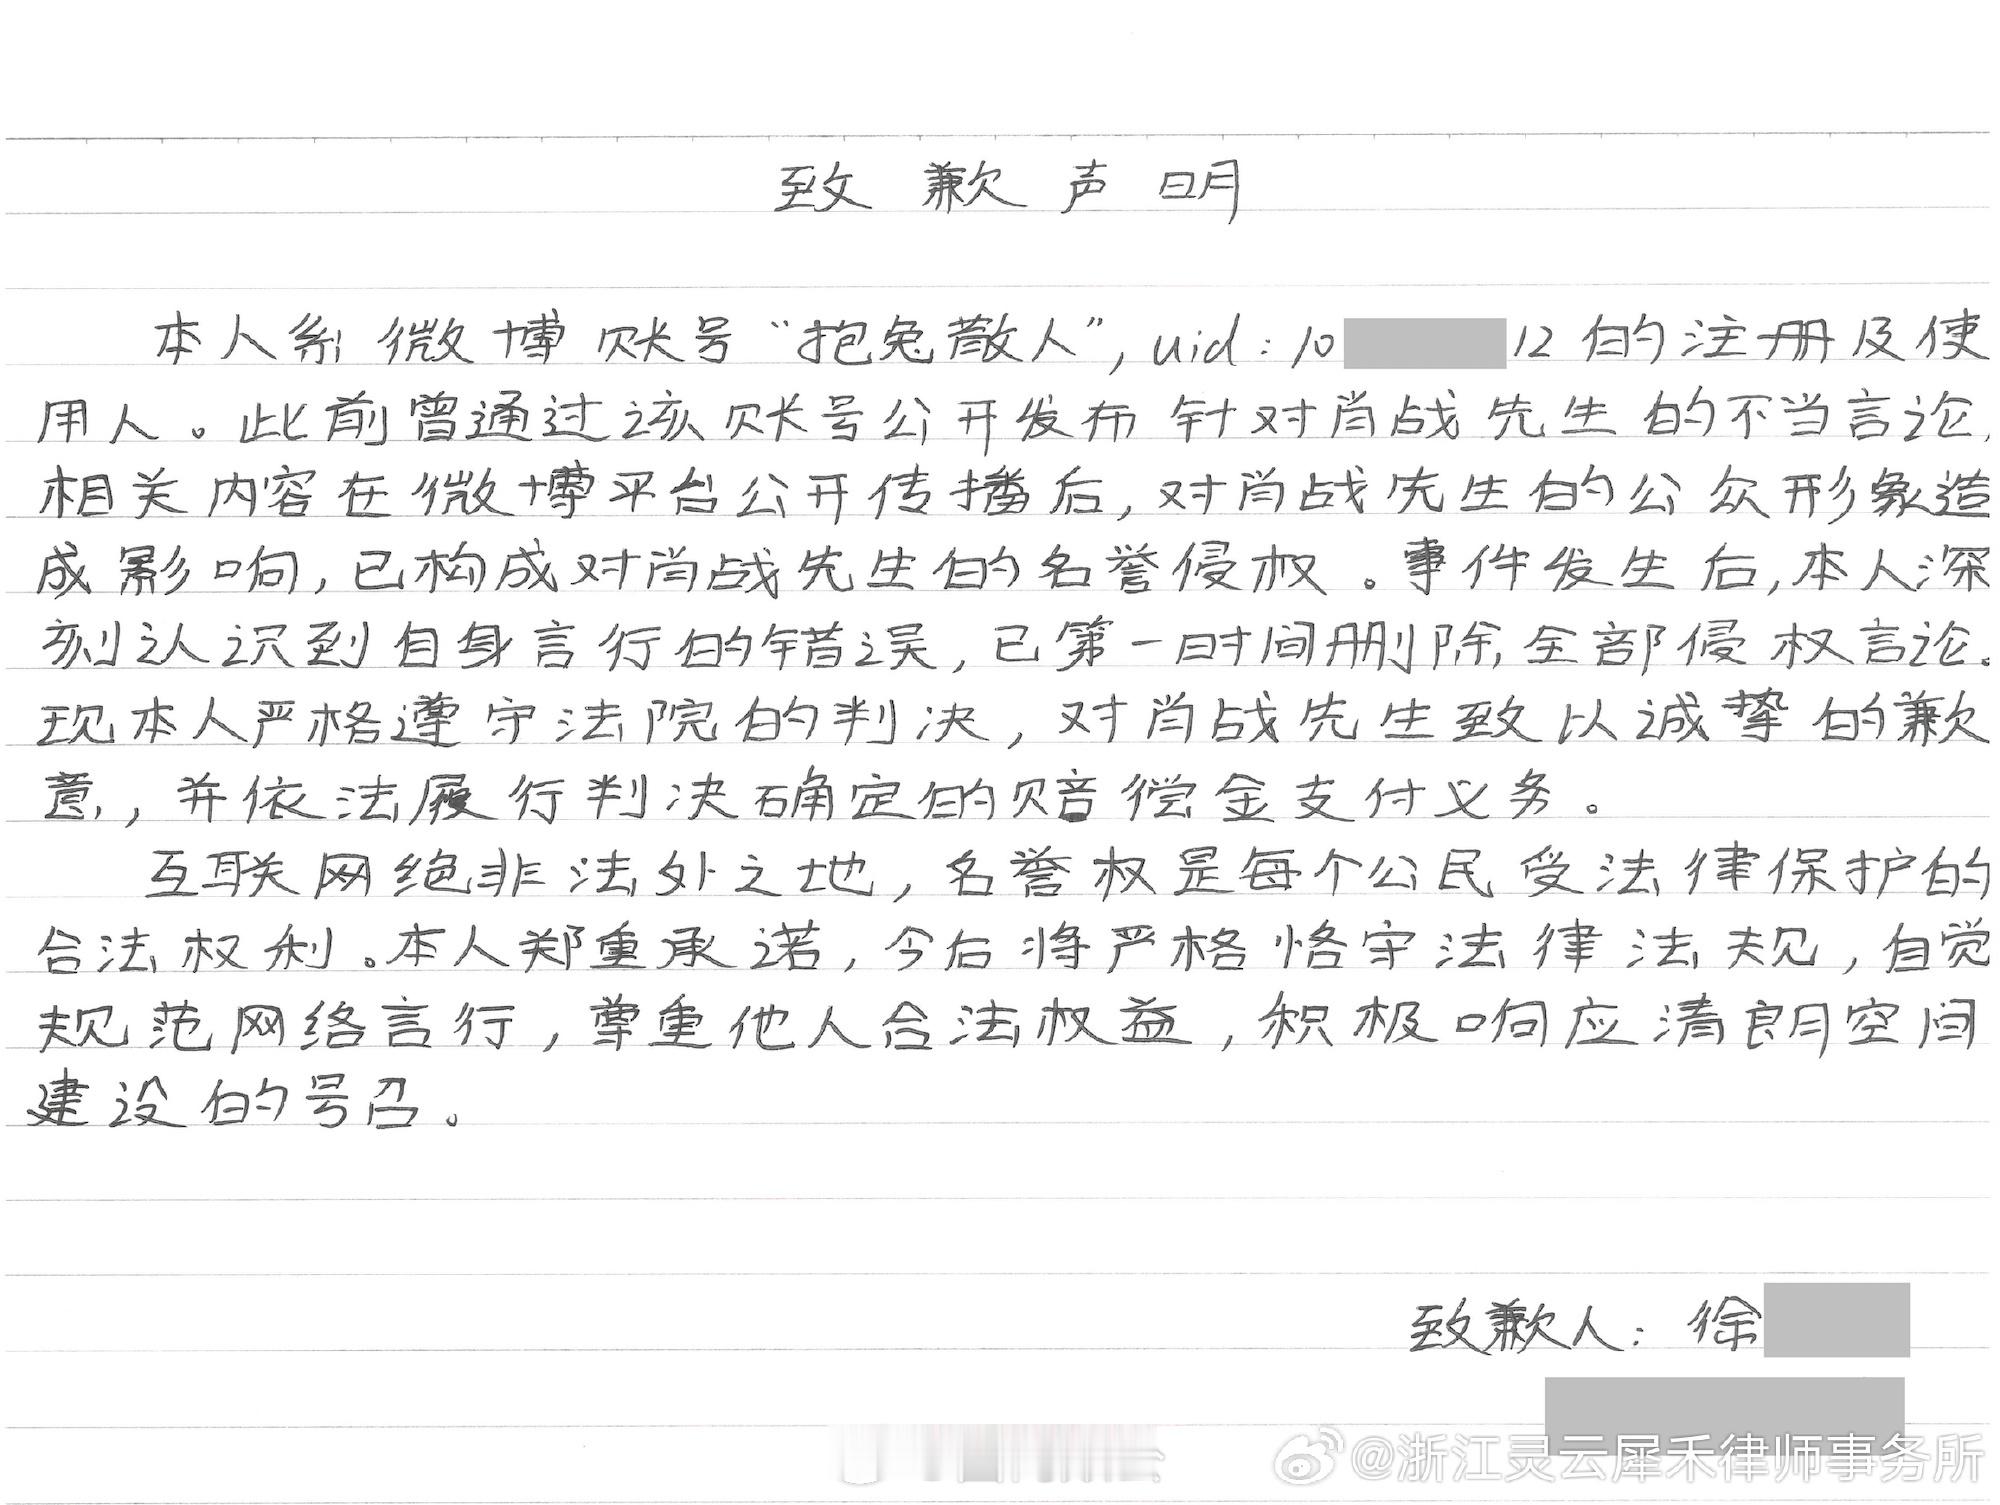 致歉声明
本人系微博账号“抱兔散人”,uid:10 12的注册及使
用人。此前曾通过该账号公开发布针对肖战先生的不当言论,
相关内容在微博平台公开传播后,对肖战先生的公众形象造
成影响,已构成对肖战先生的名誉侵权。事件发生后,本人深
刻认识到自身言行的错误,已第一时间删除全部侵权言论。
现本人严格遵守法院的判决,对肖战先生致以诚挚的歉
意,并依法履行判决确定的赔偿金支付义务。
互联网绝非法外之地,名誉权是每个公民受法律保护的
合法权利。本人郑重承诺,今后将严格恪守法律法规,自觉
规范网络言行,尊重他人合法权益,积极响应清朗空间
建设的号召。
致歉人:徐
@浙江灵云犀禾律师事务所